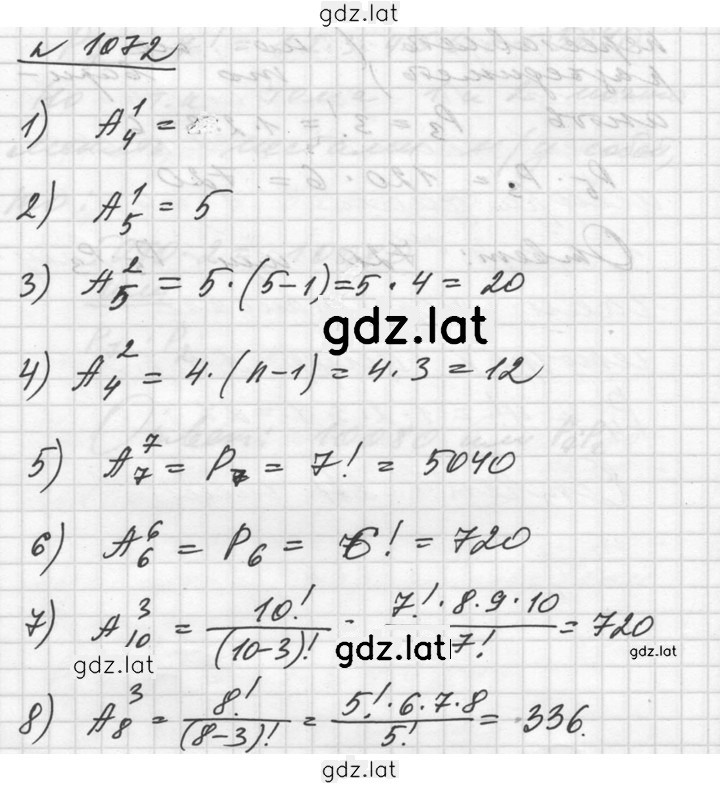 gdz.lat
№ 1072
1) A₄¹ =
2) A₅¹ = 5
3) A₅² = 5·(5-1)=5·4=20
gdz.lat
4) A₄² = 4·(n-1)=4·3=12
5) A₇⁷ = P₇ = 7! = 5040
6) A₆⁶ = P₆ = 6! = 720
7) A₁₀³ = 10!/(10-3)! = 7!·8·9·10/7! = 720
gdz.lat gdz.lat gdz.lat
8) A₈³ = 8!/(8-3)! = 5!·6·7·8/5! = 336.
gdz.lat